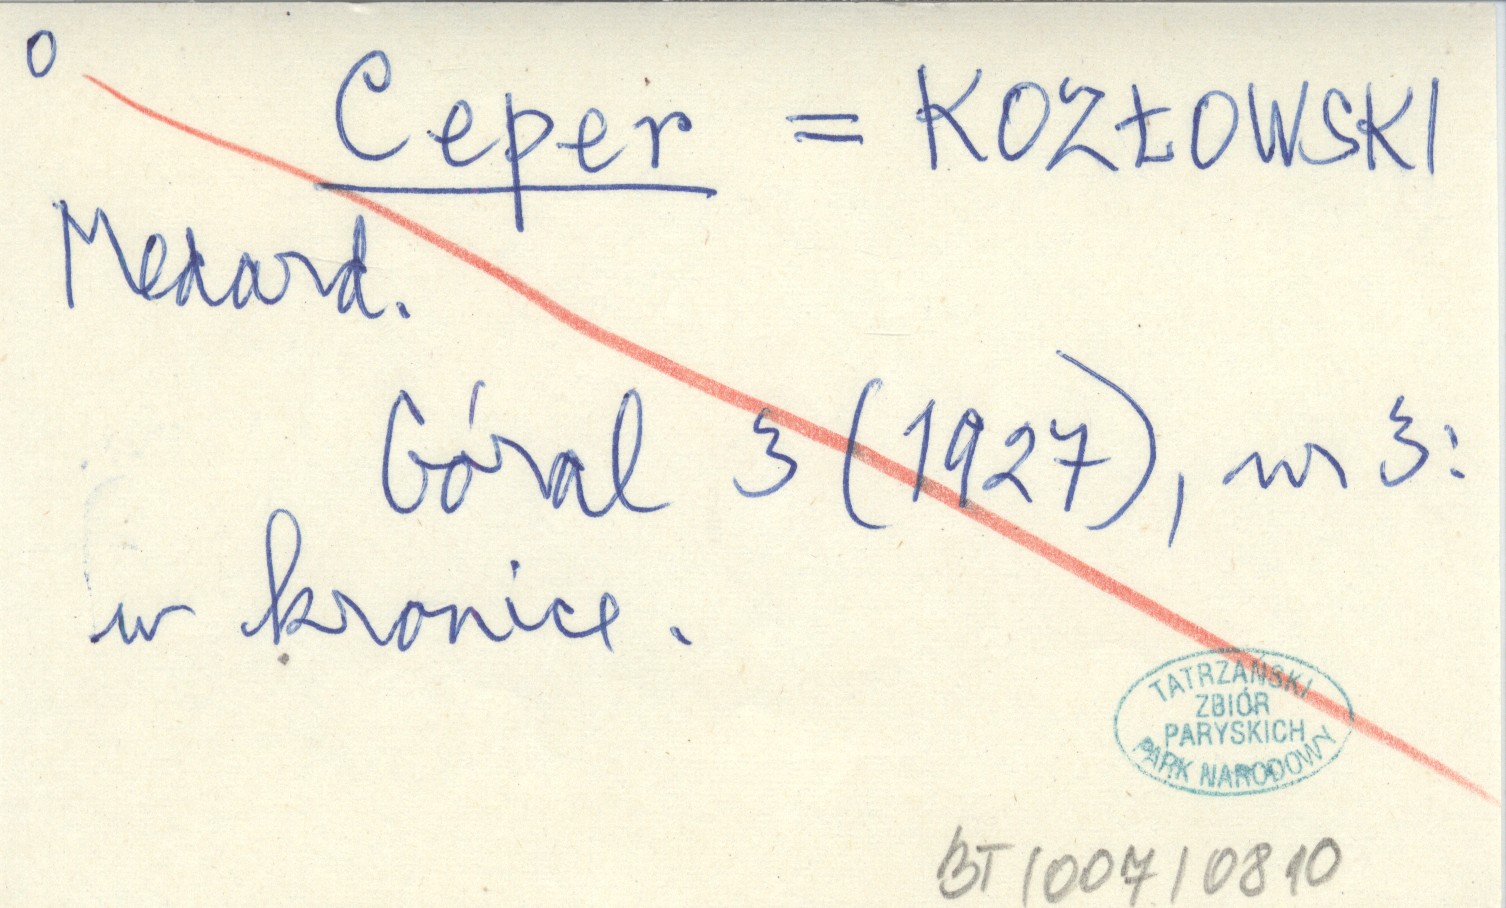 O
Ceper = KOZŁOWSKI
Medard.
Góral 3 (1927), nr 3:
w kronice.
TATRZAŃSKI
ZBIÓR
PARYSKICH
PARK NARODOWY
BT/007/0810